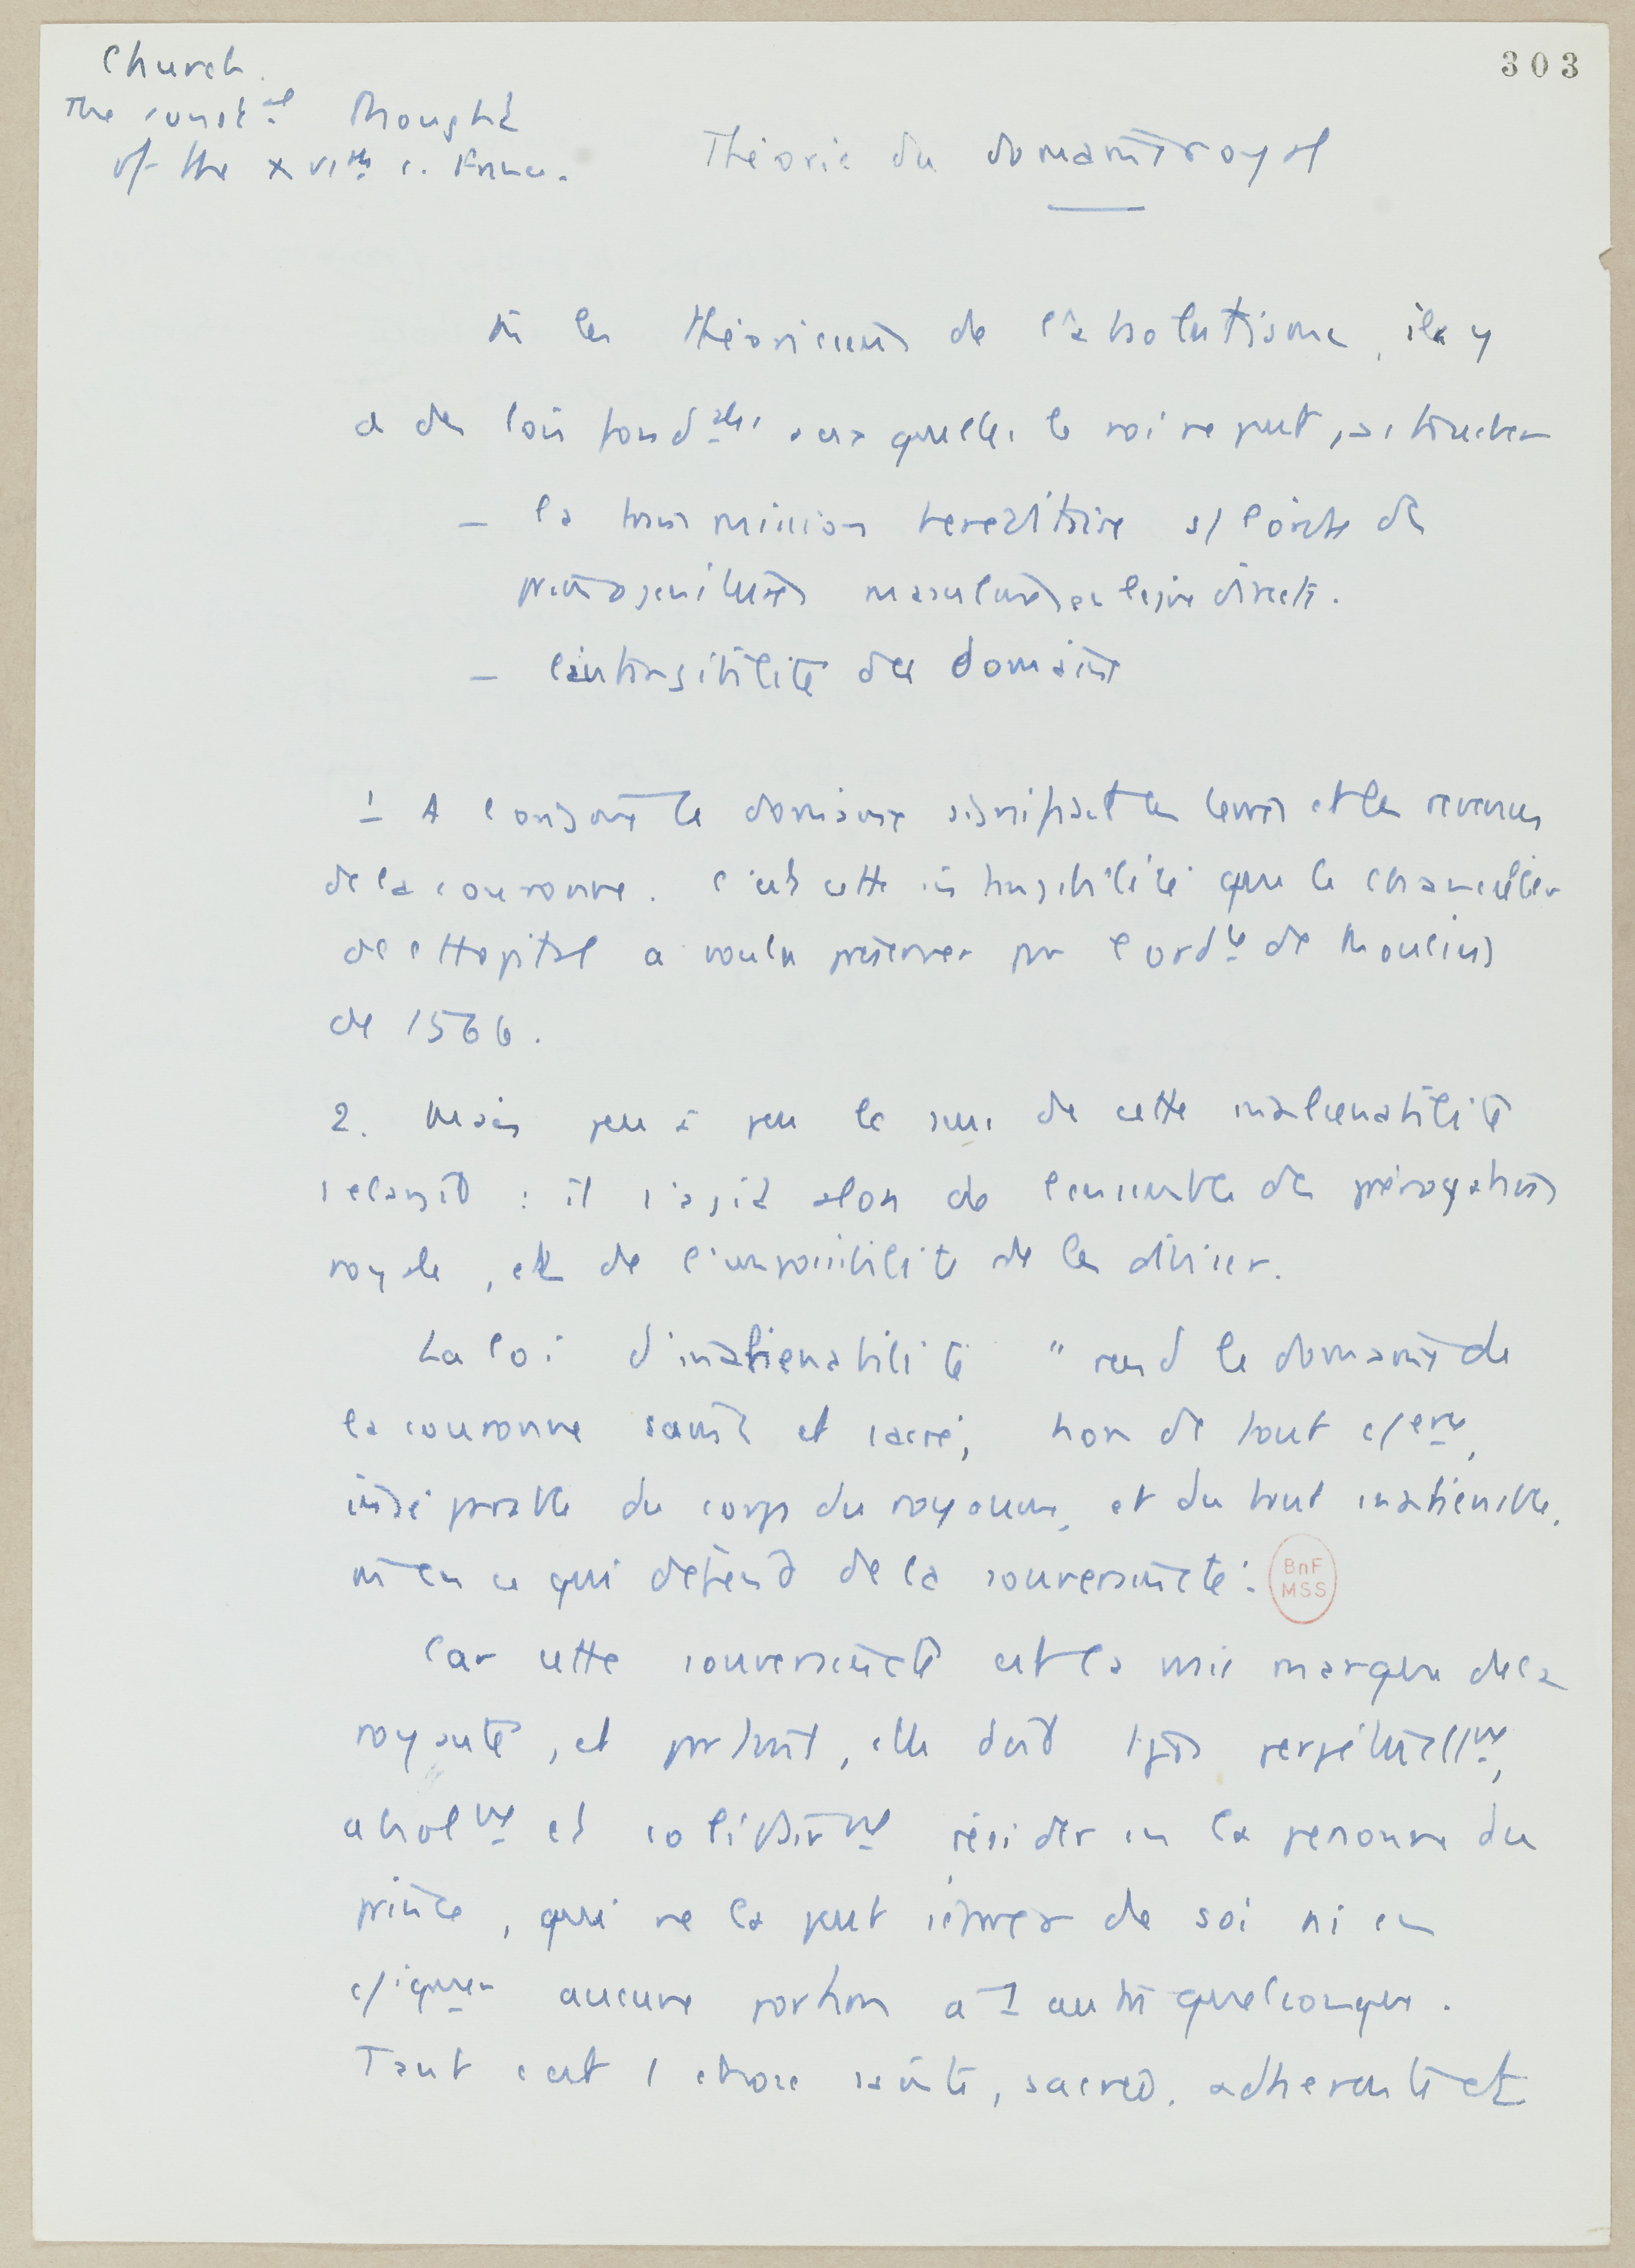 Church.
The const.al Thought
of the XVIth c. France.
303
Théorie du domaine royal
les théoriciens de l'absolutisme, il y
a des lois fond.ales auxquelles le roi ne peut pas toucher
– la transmission hereditaire s/ l'ordre de
primogeniture masculine en ligne directe.
– l'intangibilité du domaine
1 A l'origine le domaine signifiait les terres et les revenus
de la couronne. C'est cette intangibilité que le chancelier
de l'Hopital a voulu préserver par l'ord.ce de Moulins
de 1566.
2. Mais peu à peu le sens de cette inalienabilité
s'elargit : il s'agit alors de l'ensemble des prérogatives
royales, et de l'impossibilité de les diviser.
La loi d'inalienabilité "rend le domaine de
la couronne saint et sacré, hors de tout c/erce,
inséparable du corps du royaume, et du tout inalienable,
en ce qui dépend de la souveraineté :
BnF
MSS
Car cette souveraineté est la vraie marque de la
royauté, et partant, elle doit tjrs perpétuellnt,
absolnt et solidairnt résider en la personne du
prince, qui ne la peut séparer de soi ni en
c/iquer aucune portion a 1 autre quelconque.
Tant c'est 1 chose sainte, sacrée, adherente et